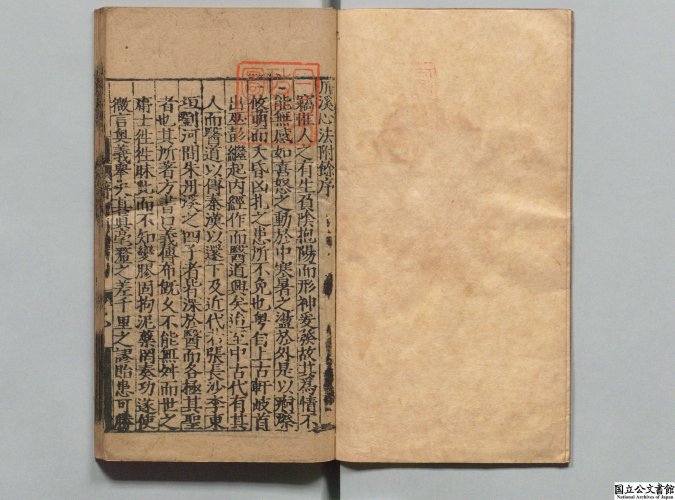 丹溪心法附餘序
竊惟人之有生負陰抱陽而形神爰發故其為情不
能無感如喜怒之動於中寒暑之盪於外是以
而夭昏凶札之患所不免也粤自上古軒岐首
出巫彭繼起内經作而醫道興矣中古代有其
人而醫道以傳秦漢以還下及近代張長沙李東
垣劉河間朱丹溪之四子者皆深於醫而各極其聖
者也其所著方書口義傳布既久不能無舛而世之
士徃徃昧此而不知變膠固拘泥藥罔奏功遂使
微言奥義其真毫釐之差千里之謬貽患可勝
国立公文書館
National Archives of Japan